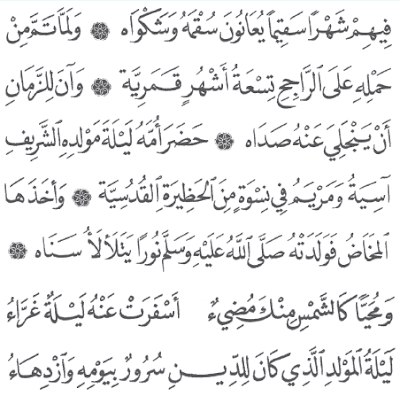 فِيهِمْ شَهْرًا سَقِيمًا يُعَانُونَ سُقْمَهُ وَشَكْوَاه ۞ وَلَمَّا تَمَّ مِنْ
حَمْلِهِ عَلَى الرَّاجِحِ تِسْعَةُ أَشْهُرٍ قَمَرِيَّة ۞ وَآنَ لِلزَّمَانِ
أَنْ يَنْجَلِيَ عَنْهُ صَدَاه ۞ حَضَرَ أُمَّهُ لَيْلَةَ مَوْلِدِهِ الشَّرِيفِ
آسِيَةُ وَمَرْيَمُ فِي نِسْوَةٍ مِنَ الْحَظِيرَةِ الْقُدُسِيَّة ۞ وَأَخَذَهَا
الْمَخَاضُ فَوَلَدَتْهُ صَلَّى اللَّهُ عَلَيْهِ وَسَلَّمَ نُورًا يَتَلَأْلَأُ سَنَاه ۞
وَمُحَيًّا كَالشَّمْسِ مِنْكَ مُضِيءٌ أَسْفَرَتْ عَنْهُ لَيْلَةٌ غَرَّاءُ
لَيْلَةُ الْمَوْلِدِ الَّذِي كَانَ لِلدِّينِ سُرُورٌ بِيَوْمِهِ وَازْدِهَاءُ